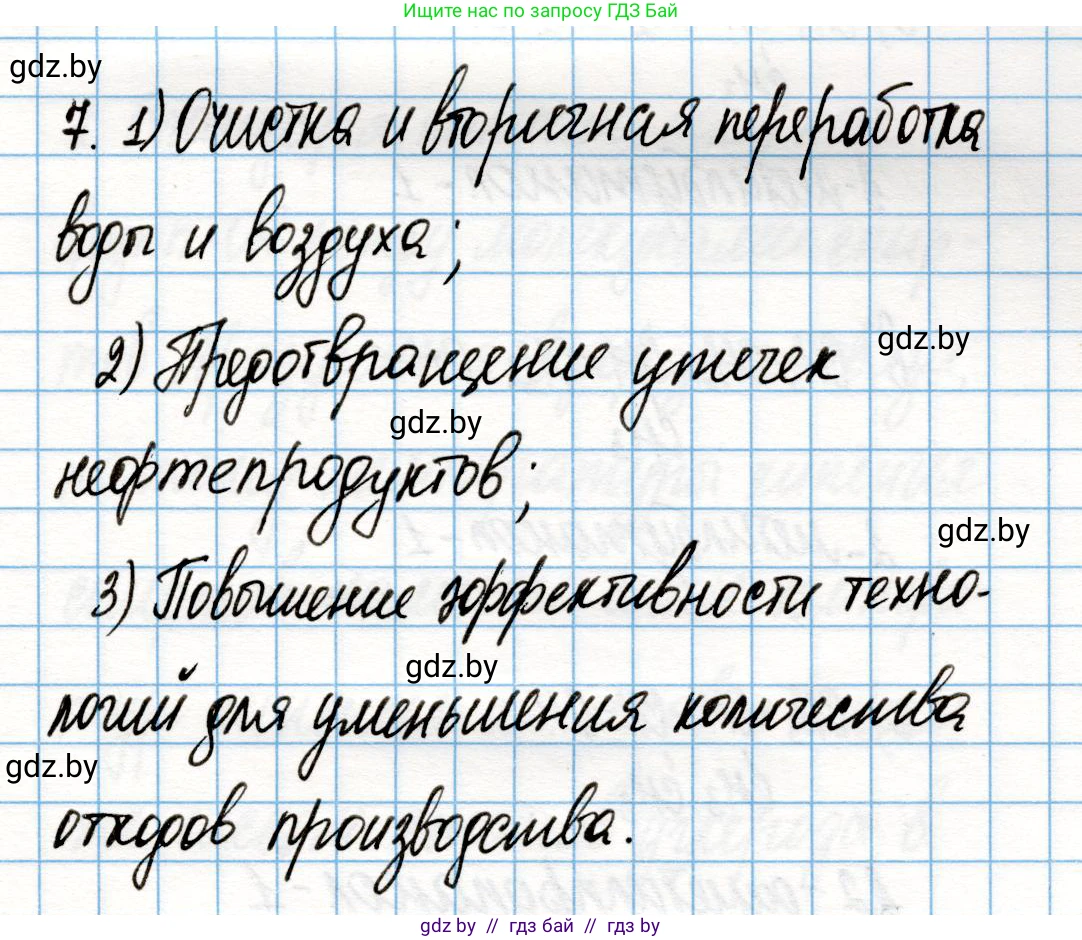 Ищите нас по запросу ГДЗ Бай
gdz.by
7. 1) Очистка и вторичная переработка
воды и воздуха;
gdz.by
2) Предотвращение утечек
gdz.by
нефтепродуктов;
gdz.by
3) Повышение эффективности техно-
gdz.by
логий для уменьшения количества
gdz.by
отходов производства.
gdz.by // гдз бай // гдз.by